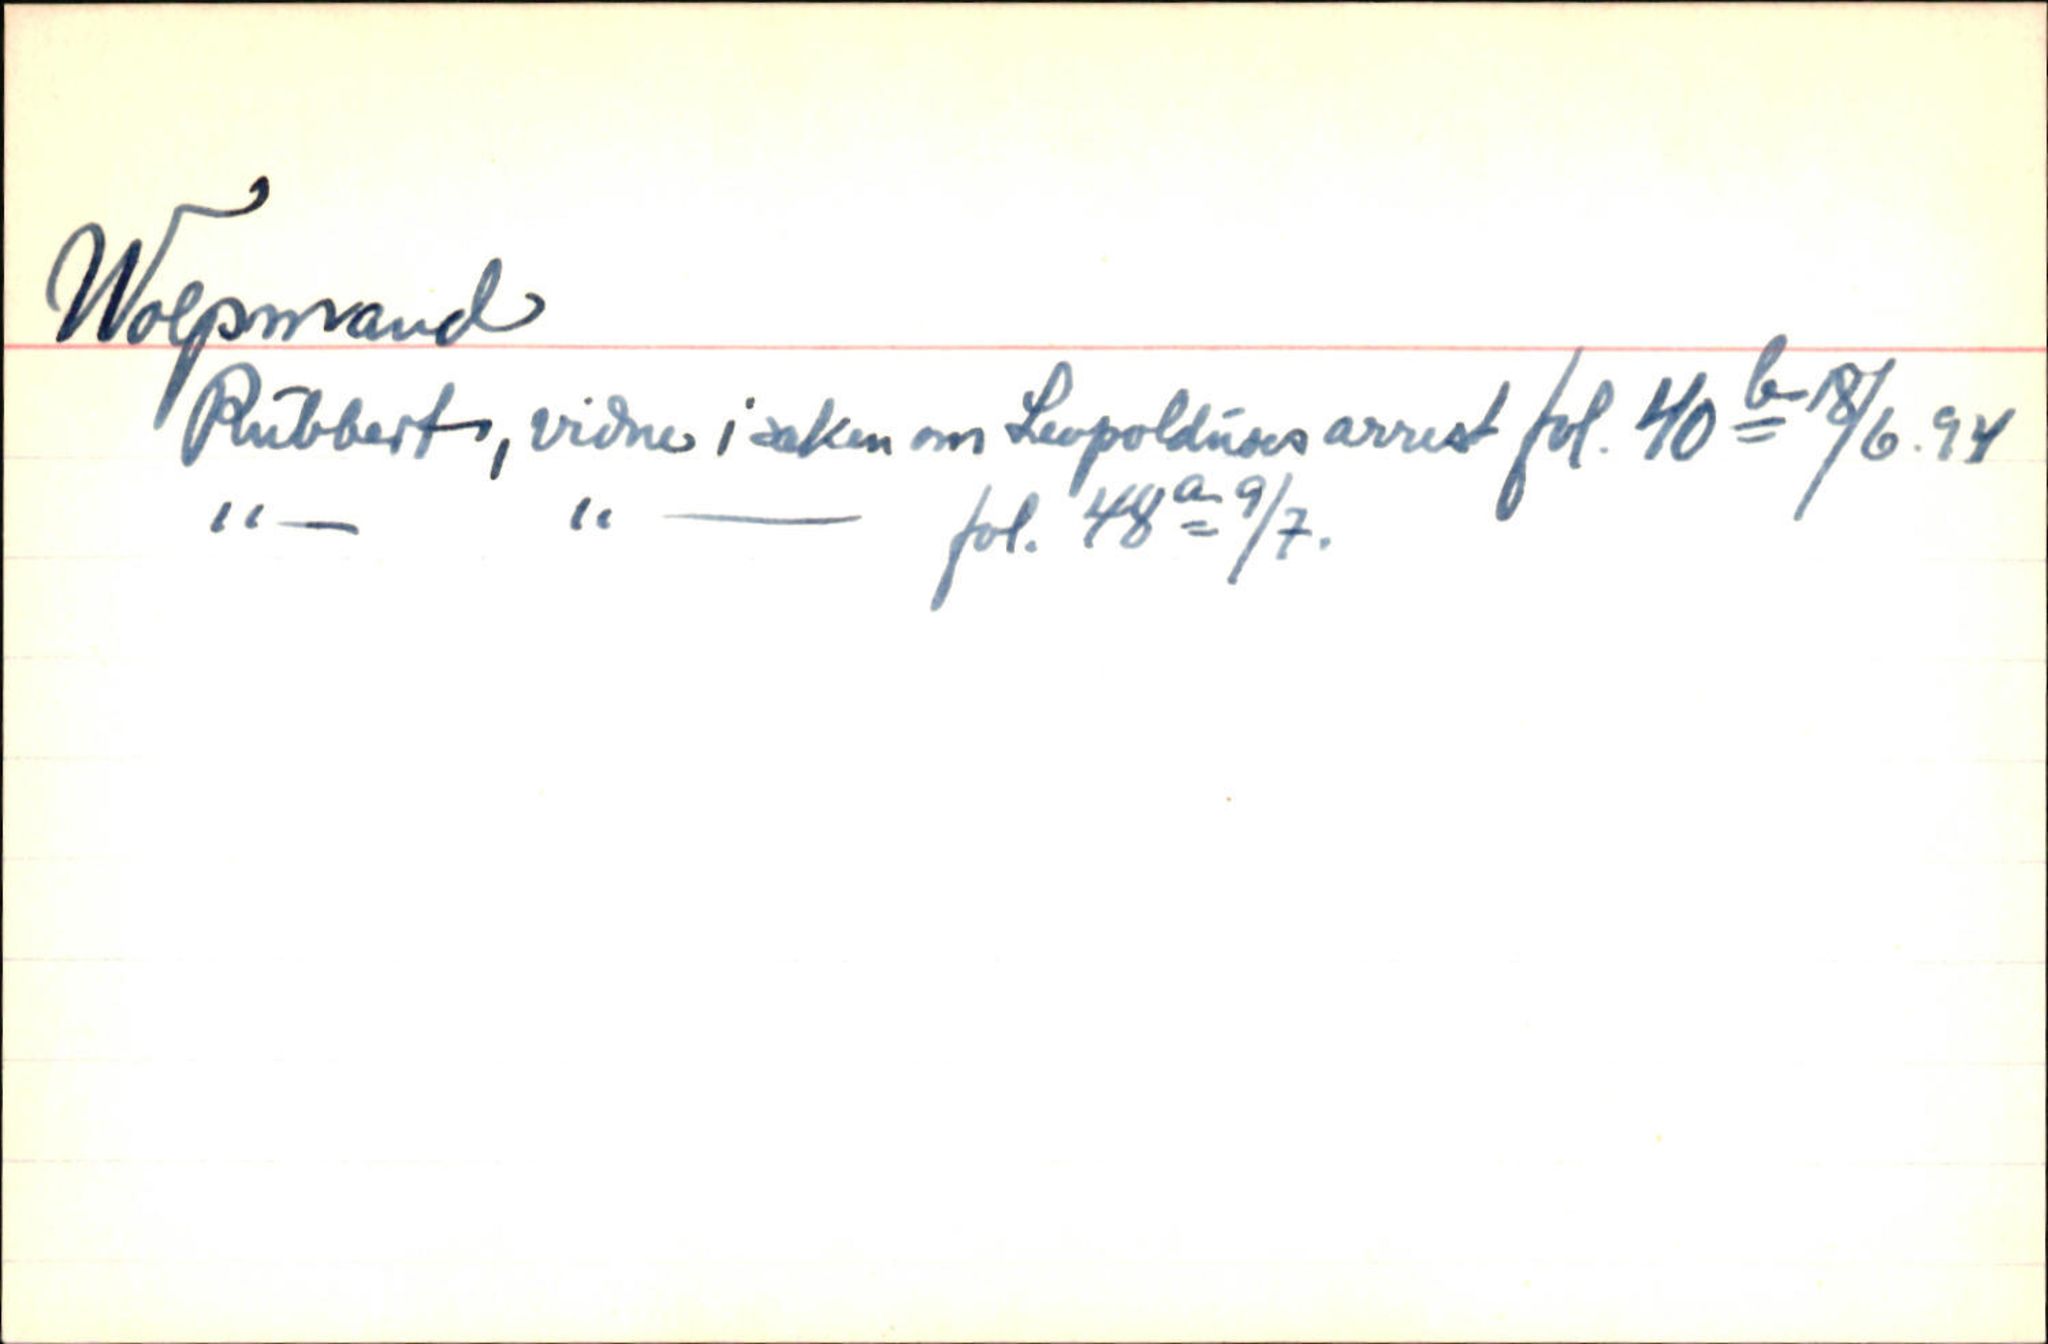 Wolpmand
Rübbert, vidne i saken om Leopolduses arrest fol. 40 b 18/6.94
"— " — fol. 48 a 9/7.